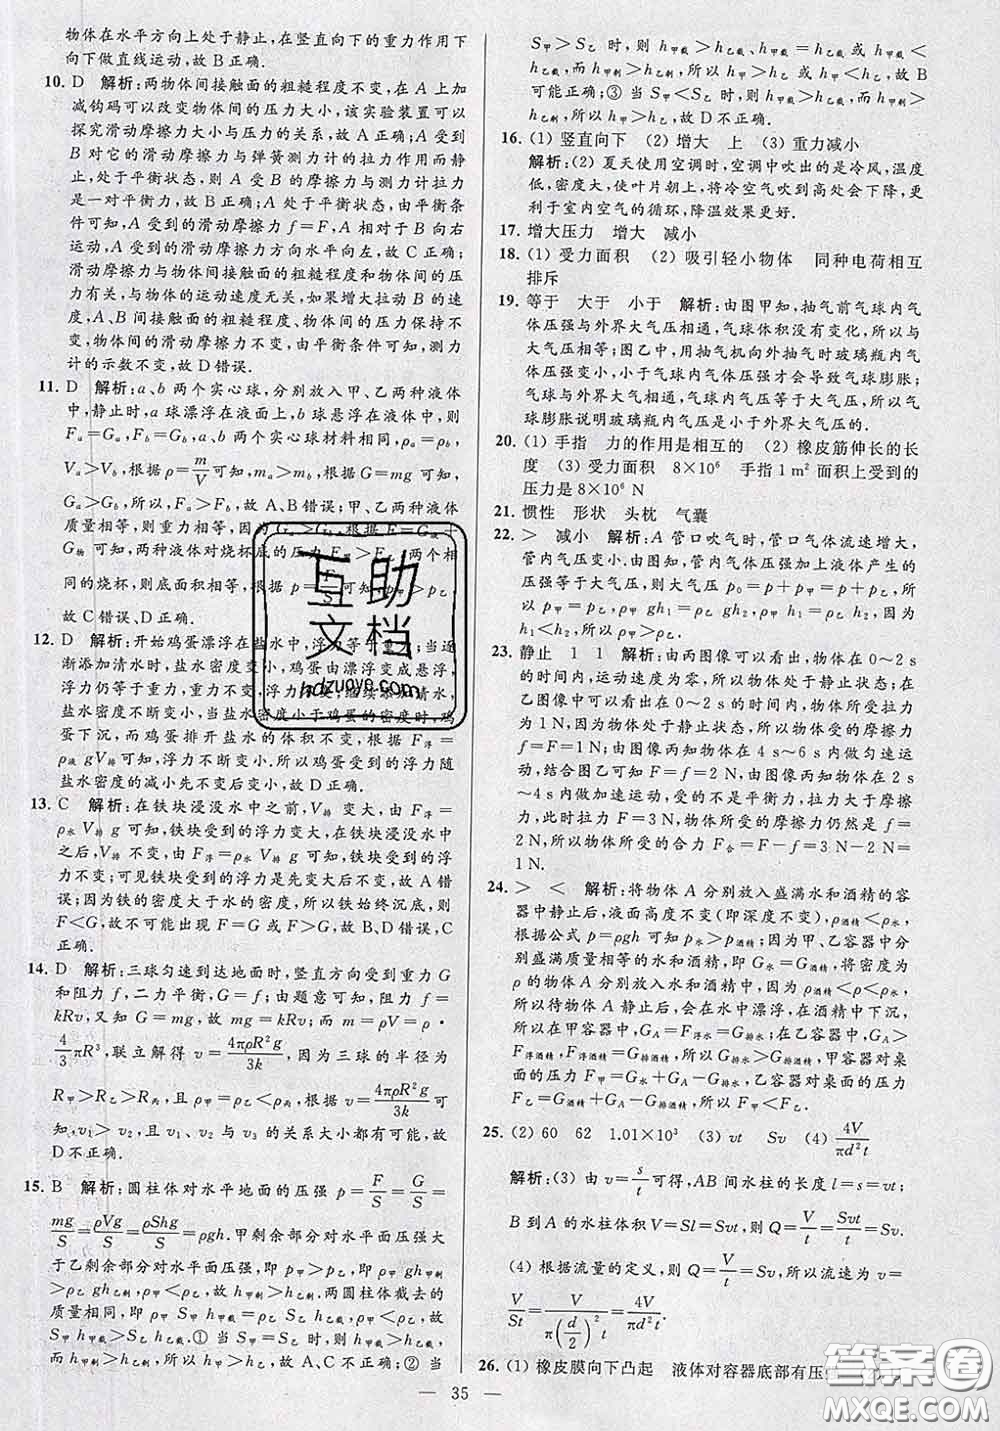 物体在水平方向上处于静止,在竖直向下的重力作用下
向下做直线运动,故 B 正确.
10. D 解析:两物体间接触面的粗糙程度不变,在 A 上加
减钩码可以改变物体间的压力大小,该实验装置可以
探究滑动摩擦力大小与压力的关系,故 A 正确;A 受到
B 对它的滑动摩擦力与弹簧测力计的拉力作用而静
止,处于平衡状态,则 A 受 B 的摩擦力与测力计拉力
是一对平衡力,故 B 正确;A 处于平衡状态,由平衡条
件可知,A 受到的滑动摩擦力 f=F,A 相对于 B 向右
运动,A 受到的滑动摩擦力方向水平向左,故 C 正确;
滑动摩擦力与物体间接触面的粗糙程度和物体间的压
力有关,与物体的运动速度无关,如果增大拉动 B 的速
度,A、B 间接触面的粗糙程度、物体间的压力保持不
变,物体间的滑动摩擦力不变,由平衡条件可知,测力
计的示数不变,故 D 错误.
11. D 解析:a、b 两个实心球,分别放入甲、乙两种液体
中,静止时,a 球漂浮在液面上,b 球悬浮在液体中,则
Fa=Ga,Fb=Gb,a、b 两个实心球材料相同,ρa=ρb,
Va>Vb,根据 ρ=m/V 可知,ma>mb,根据 G=mg 可知,
Ga>Gb,所以,Fa>Fb,故 A、B 错误;甲、乙两种液体
质量相等,则重力相等,因为 Ga>Gb,根据 F=G液+
G物 可知,两种液体对烧杯底的压力 F甲>F乙,两个相
同的烧杯,则底面积相等,根据 p=F/S 可知,p甲>p乙,
故 C 错误、D 正确.
12. D 解析:开始鸡蛋漂浮在盐水中,浮力等于重力;当逐
渐添加清水时,盐水密度变小,鸡蛋由漂浮变成悬浮,
浮力仍等于重力,重力不变,浮力不变;继续添加清水,
盐水密度不断变小,当盐水密度小于鸡蛋的密度时,鸡
蛋下沉,而鸡蛋排开盐水的体积不变,根据 F浮=
ρ液V排g 可知,浮力不断变小.所以鸡蛋受到的浮力随
盐水密度的减小先不变后变小,故 D 正确.
13. C 解析:在铁块浸没水中之前,V排 变大,由 F浮=
ρ水V排g 可知,铁块受到的浮力变大,在铁块浸没水中
之后,V排 不变,由 F浮=ρ水V排g 可知,铁块受到的浮
力不变;可见铁块受到的浮力是先变大后不变,故 A
错误;因为铁的密度大于水的密度,所以铁块始终沉底,则
F<G.故不可能出现 F=G 或 F>G,故 B、D 错误,C
正确.
14. D 解析:三球匀速到达地面时,竖直方向受到重力 G
和阻力 f,二力平衡,G=f;由题意可知,阻力 f=
kRv,又知 G=mg,故 mg=kRv;而 m=ρV=ρ·
4/3πR³,联立解得 v=4πρR²g/3k,因为三球的半径为
R甲>R乙>R丙,且 ρ甲=ρ乙<ρ丙,根据 v=4πρR²g/3k 可
知,v1>v2,且 v1、v2 与 v3 的关系大小都有可能,故
D 不正确.
15. B 解析:圆柱体对水平地面的压强 p=F/S=G/S=
mg/S=ρVg/S=ρShg/S=ρgh.甲剩余部分对水平面压强大
于乙剩余部分对水平面压强,即 p甲>p乙,即 ρ甲gh甲剩
>ρ乙gh乙剩,因为 ρ甲<ρ乙,故 h甲剩>h乙剩.两圆柱体截去的
质量相同,即 ρ甲S甲h甲截=ρ乙S乙h乙截,因为 ρ甲<ρ乙,故
S甲h甲截>S乙h乙截.① 当 S甲=S乙 时,则 h甲截>h乙截,
而 h甲剩>h乙剩,所以 h甲>h乙,故 A、C 不正确;② 当
S甲>S乙 时,则 h甲截>h乙截、h甲截=h乙截 或 h甲截<
h乙截,而 h甲剩>h乙剩,所以 h甲>h乙 或 h甲<h乙,故 B
可能正确;③ 当 S甲<S乙 时,则 h甲截>h乙截,而 h甲剩>
h乙剩,所以 h甲>h乙,故 D 不正确.
16. (1) 竖直向下 (2) 增大 上 (3) 重力减小
解析:(2) 夏天使用空调时,空调中吹出的是冷风,温度
低,密度大,使叶片朝上,将冷空气吹到高处会下降,更
利于室内空气的循环,降温效果更好.
17. 增大压力 增大 减小
18. (1) 受力面积 (2) 吸引轻小物体 同种电荷相互
排斥
19. 等于 大于 小于 解析:由图甲知,抽气前气球内气
体压强与外界大气压相通,气球体积没有变化,所以与
大气压相等;图乙中,用抽气机向外抽气时玻璃瓶内气
体压强变小,气球内气体压强才会导致气球膨胀;
气球膨胀,气球内气体压强大于气球外大气压,所以气
球膨胀说明玻璃瓶内气压是小于外界大气压的.
20. (1) 手指 力的作用是相互的 (2) 橡皮筋伸长的长
度 (3) 受力面积 8×10⁶ 手指 1 m² 面积上受到的
压力是 8×10⁶ N
21. 惯性 形状 头枕 气囊
22. > 减小 解析:A 管口吹气时,管口气体流速增大,
管内气压变小.由图知,管内气体压强加上液体产生的
压强等于大气压,则大气压 p0=p+p甲=p+p乙,
所以 p甲=p乙,ρ甲gh1=ρ乙gh2,所以 ρ甲h1=ρ乙h2,因为
h1<h2,所以 ρ甲>ρ乙.
23. 静止 1 1 解析:由两图像可以看出,物体在 0～2 s
的时间内,运动速度为零,所以物体处于静止状态.在
乙图像可以看出,在 0～2 s 的时间内,物体所受拉力
为 1 N,因为物体处于静止状态,所以受的摩擦力
f=F=1 N;由图像丙知物体在 4 s～6 s 内做匀速运
动,结合图乙可知 F=f=2 N,由图像知物体在 2 s
～4 s 内做加速运动,受的不是平衡力,拉力大于摩擦
力,此时拉力 F=3 N,物体所受的摩擦力仍然是 f=
2 N.所以物体所受的合力 F合=F-f=3 N-2 N=
1 N.
24. > < 解析:将物体 A 分别放入盛满水和酒精的容
器中静止后,液面高度不变(即深度不变),ρ酒精<ρ水,
根据公式 p=ρgh 可知 p水>p酒精;因为甲、乙容器分
别盛满质量相等的水和酒精,即 G水=G酒精,将密度为
ρ 的物体 A 分别放入水和酒精中,因为 ρ酒精<ρ<ρ水,
所以待物体 A 静止后,会在水中漂浮,在酒精中下沉,
所以在甲容器中,GA=F浮水=G排水;在乙容器中,GA>
F浮酒精=G排酒精,所以 G排水>G排酒精,甲容器对桌
面的压力 F甲=G水+GA-G排水,乙容器对桌面的压力
F乙=G酒精+GA-G排酒精,所以 F甲<F乙.
25. (2) 60 62 1.01×10³ (3) vt Sv (4) 4V/πd²t
解析:(3) 由 v=s/t 可得,AB 间水柱的长度 l=s=vt;
B 到 A 的水柱体积 V=Sl=Svt,则 Q=V/t=Svt/t=Sv.
(4) 根据流量的定义,则 Q=V/t=Sv,所以流速为 v=
V/St=V/π(d/2)²t=4V/πd²t.
26. (1) 橡皮膜向下凸起 液体对容器底部有压
— 35 —
互助
文档
hdzuoye.com
答案圈
MXQE.COM